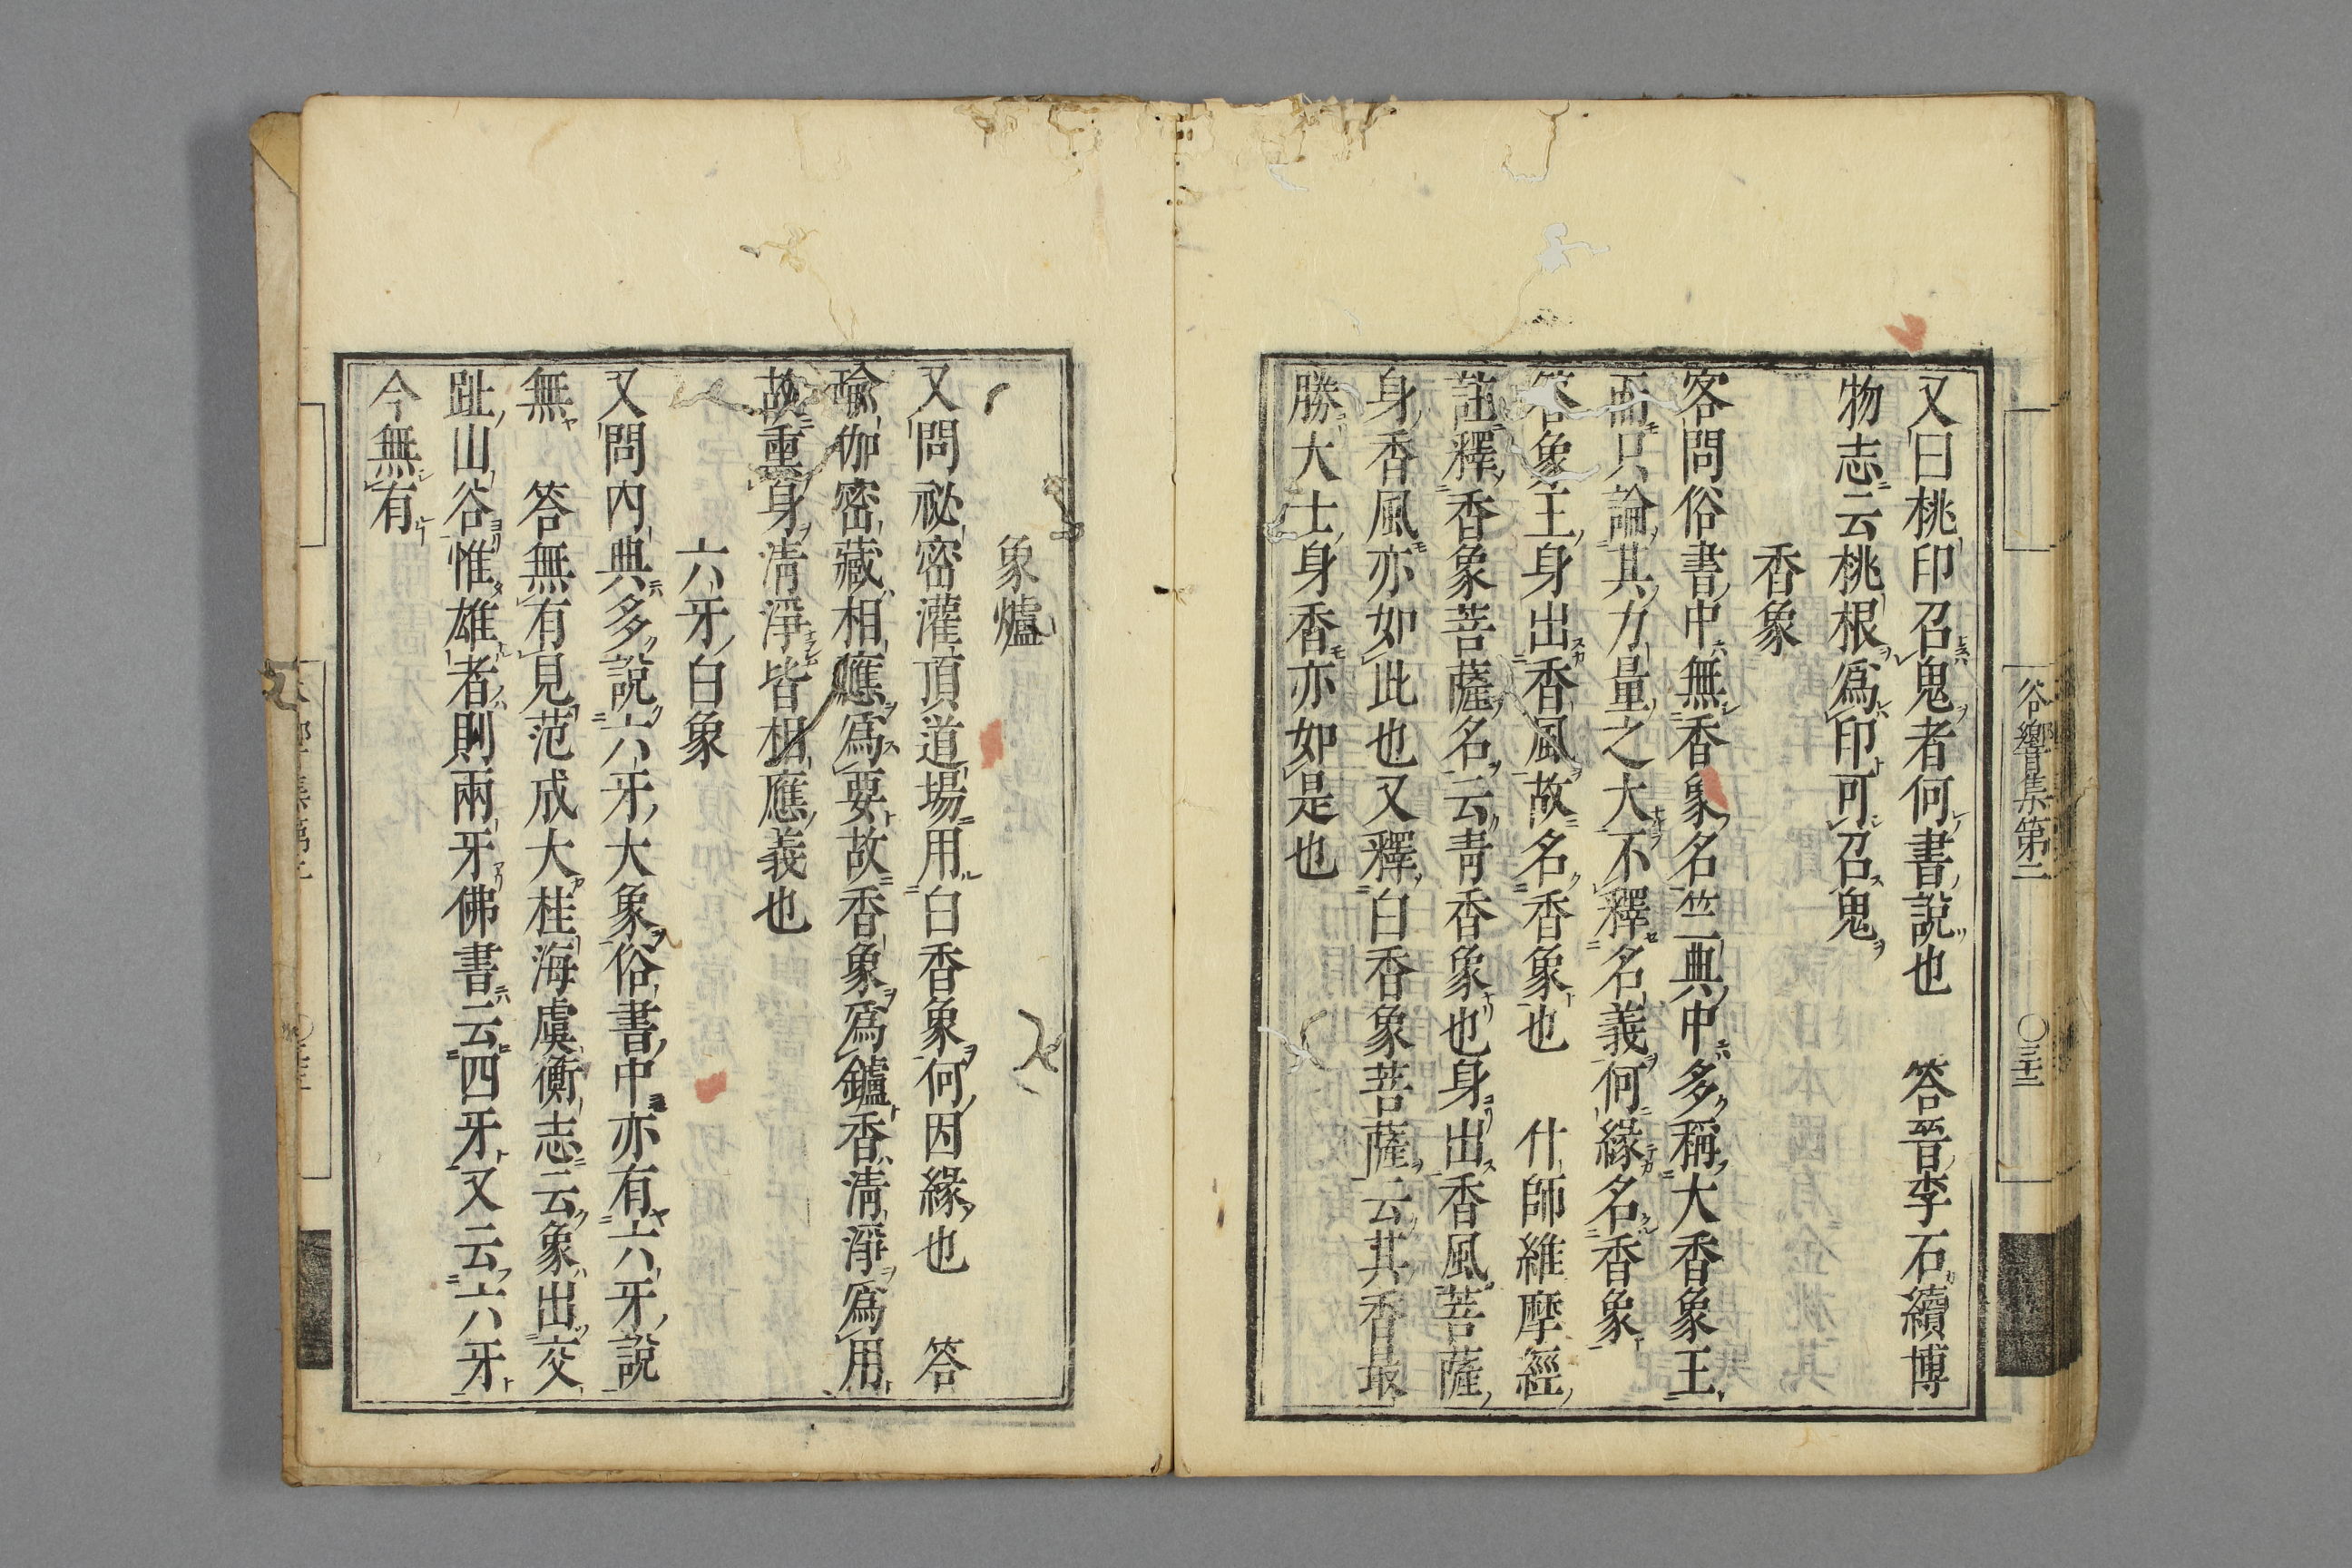 又曰桃印召鬼者何書說也　答晉李石續博
物志云桃根爲印可召鬼
香象
客問俗書中無香象名竺典中多稱大香象王
而只論其力量之大不釋名義何緣名香象
答象王身出香風故名香象也　什師維摩經
註釋香象菩薩名云靑香象也身出香風菩薩
身香風亦如此也又釋白香象菩薩云其香最
勝大士身香亦如是也
谷響集第二　〇三十二
象爐
又問祕密灌頂道場用白香象何因緣也　答
瑜伽密藏相應爲要故香象爲鑪香淸淨爲用
故熏身淸淨皆相應義也
六牙白象
又問內典多說六牙大象俗書中亦有六牙說
無　答無有見范成大桂海虞衡志云象出交
趾山谷惟雄者則兩牙佛書云四牙又云六牙
今無有